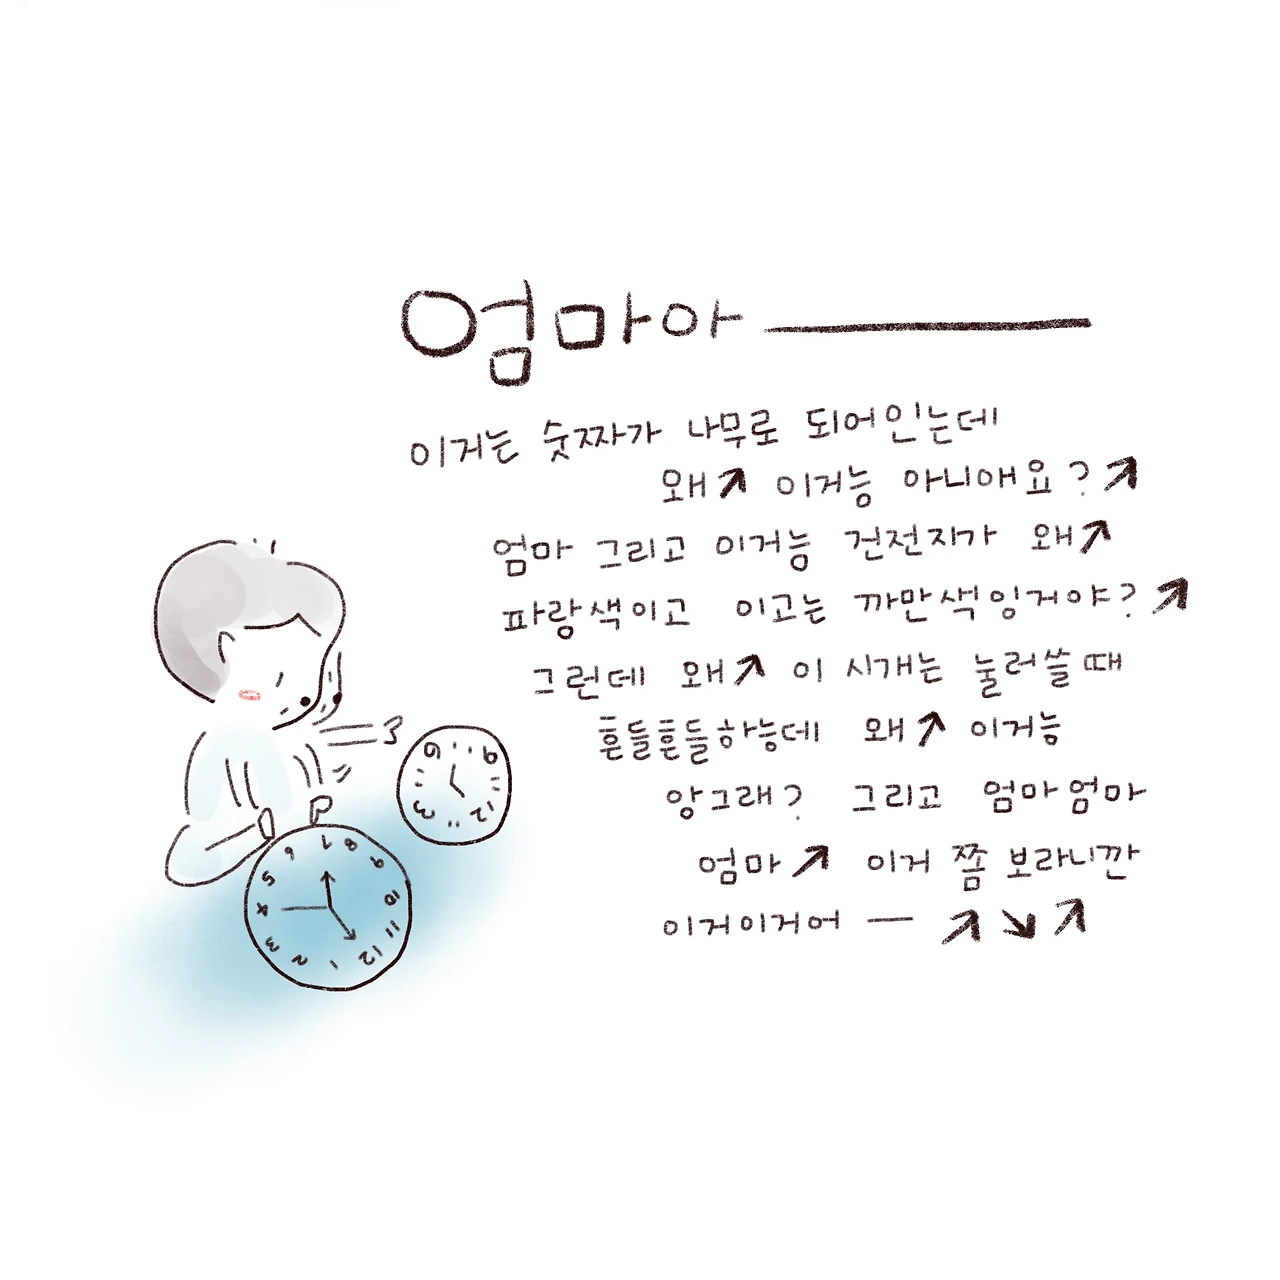 엄마아 ―
이거는 숫짜가 나무로 되어인는데
왜↗ 이거능 아니애요?↗
엄마 그리고 이거능 건전지가 왜↗
파랑색이고 이고는 까만색잉거야?↗
그런데 왜↗ 이 시개는 눌러쓸때
흔들흔들하능데 왜↗ 이거능
앙그래? 그리고 엄마엄마
엄마↗ 이거 쫌 보라니깐
이거이거어 ― ↗↘↗
6 9 12 3
1 2 3 4 5 6 7 8 9 10 11 12